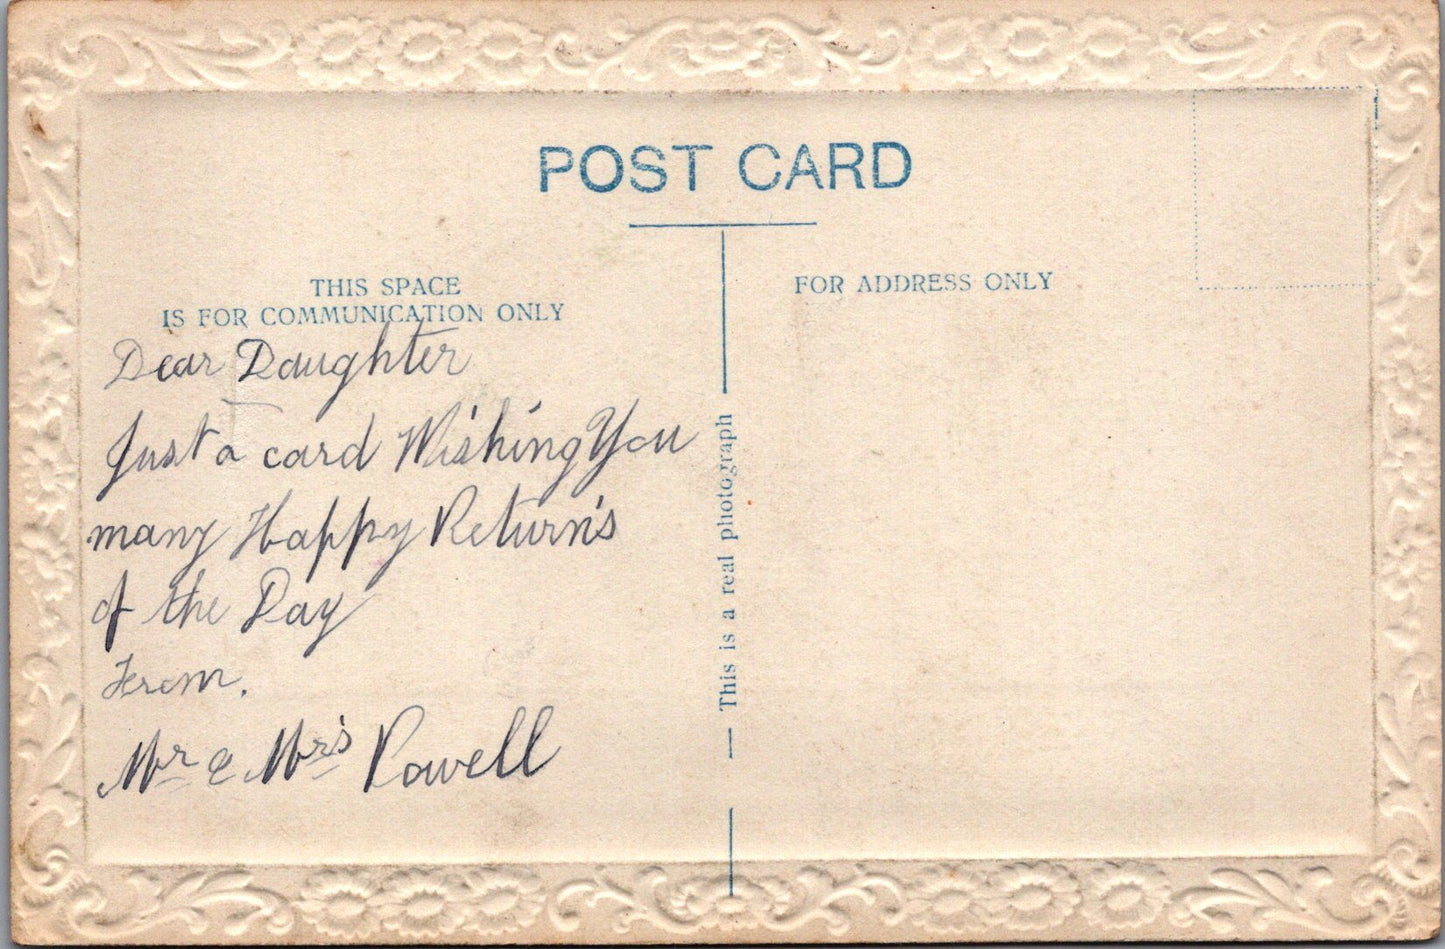 POST CARD
THIS SPACE
IS FOR COMMUNICATION ONLY
FOR ADDRESS ONLY
Dear Daughter
Just a card Wishing You
many Happy Return's
of the Day
From.
Mr & Mr's Powell
This is a real photograph